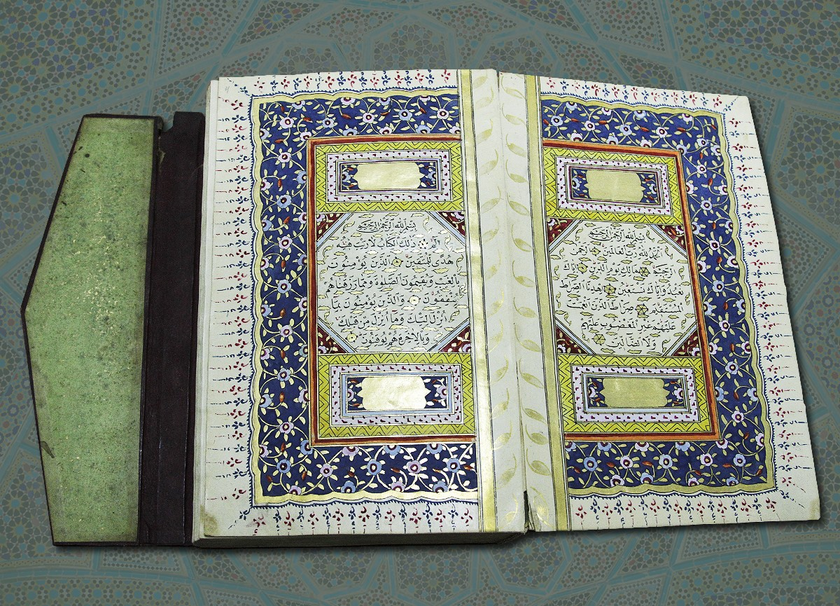 بسم الله الرحمن الرحيم
الحمد لله رب العالمين
الرحمن الرحيم مالك يوم الدين اياك
نعبد واياك نستعين اهدنا الصراط
المستقيم صراط الذين انعمت
عليهم غير المغضوب عليهم
ولا الضالين
بسم الله الرحمن الرحيم
الم ذلك الكتاب لا ريب فيه
هدى للمتقين الذين يؤمنون
بالغيب ويقيمون الصلوة ومما رزقناهم
ينفقون والذين يؤمنون بما
انزل اليك وما انزل من قبلك
وبالاخرة هم يوقنون